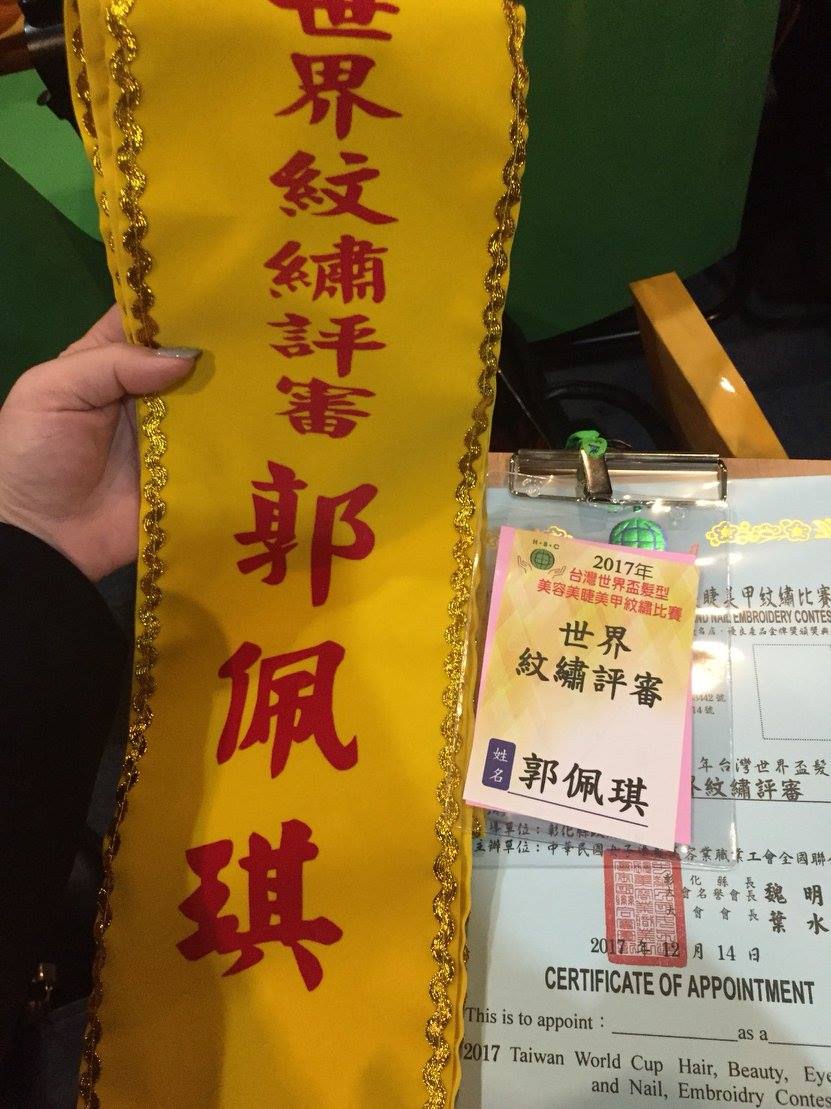 世界紋繡評審 郭佩琪
H·B·C
2017年
台灣世界盃髮型
美容美睫美甲紋繡比賽
世界
紋繡評審
姓名 郭佩琪
睫美甲紋繡比賽
ND NAIL EMBROIDERY CONTES
3442 號
14 號
年台灣世界盃髮
紋繡評審
單位：彰化縣
主辦單位：中華民國
容業職業工會全國聯
彰化縣長
大會名譽會長 魏 明
大會會長 葉 水
2017 年 12 月 14 日
CERTIFICATE OF APPOINTMENT
This is to appoint： as a
2017 Taiwan World Cup Hair, Beauty, Eye
and Nail, Embroidry Contes